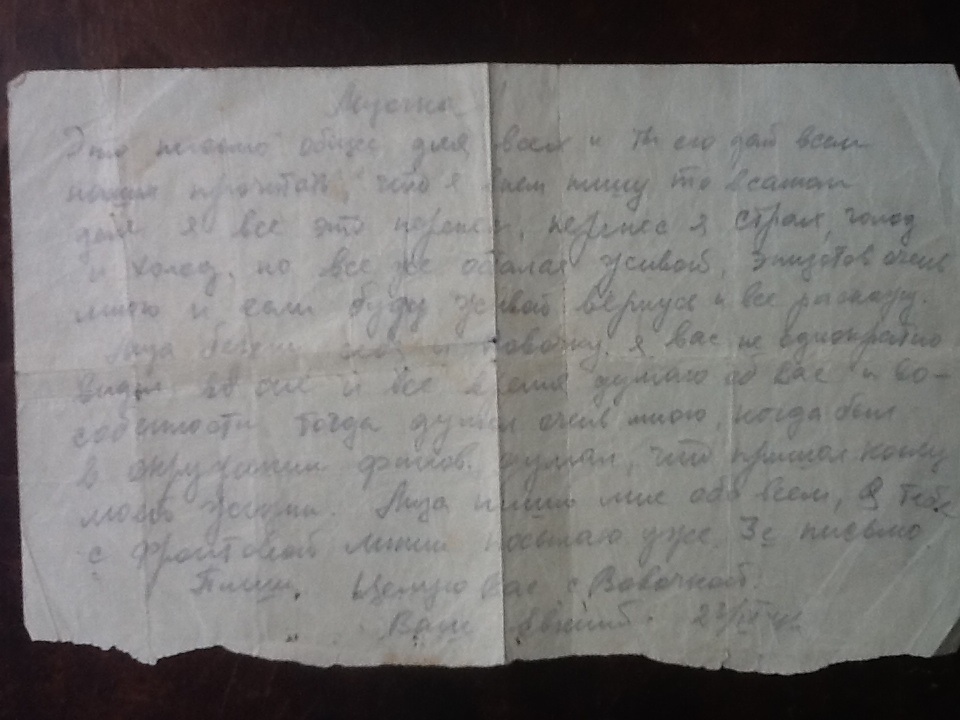 Лизочка!
Это письмо общее для всех и ты его дай всем
нашим прочитать, что я Вам пишу то в самом
деле я все это перенес, перенес я страх, голод
и холод, но все же остался живой, эпизотов очень
много и если буду живой вернусь и все раскажу.
Лиза береги себя и Вовочку, я вас не однократно
видел во сне и все время думаю об вас и во-
собенности тогда думал очень много, когда был
в окружении финов. думал, что пришол конец
моей жизни. Лиза пиши мне обо всем, я тебе
с фронтовой линии посылаю уже 3е письмо
Пиши. Целую вас с Вовочкой.
Ваш 23/